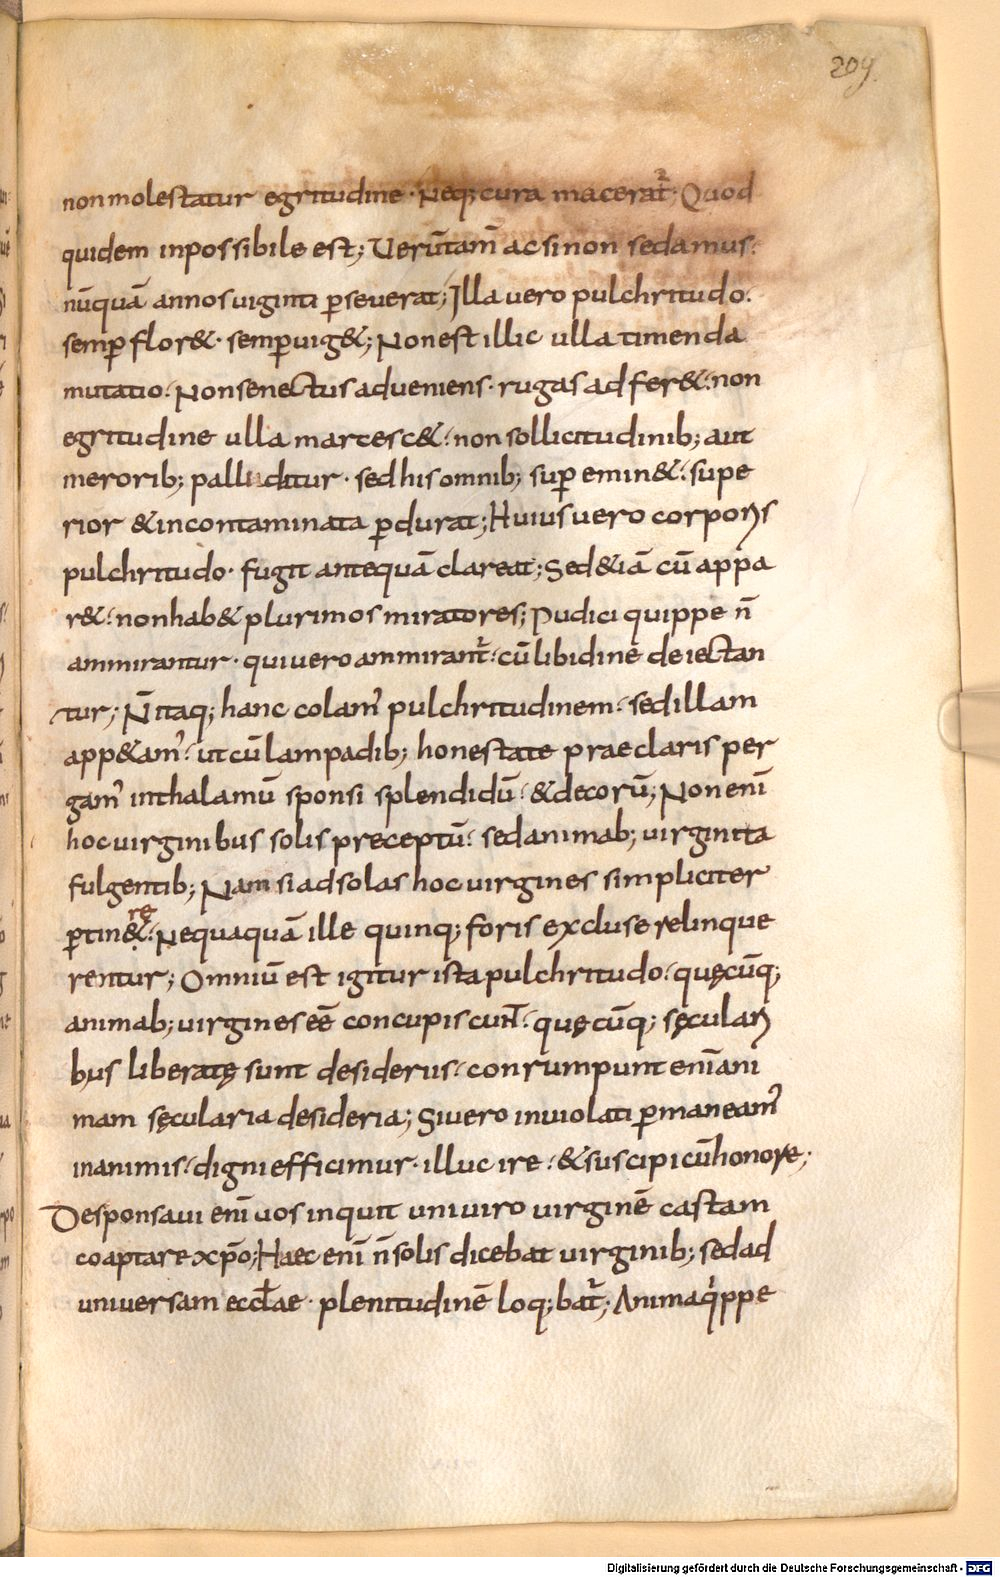 209
non molestatur egritudine · Neq; cura macerat᷑· Quod
quidem inpossibile est; Verūtam̄ ac si non sedamus:
nūquā annos viginti ꝑseverat; Illa vero pulchritudo.
semꝑ flor& · semꝑ uig&; Non est illic ulla timenda
mutatio · Non senectus adveniens · rugas adfer& · non
egritudine ulla marcesc& · non sollicitudinib; aut
merorib; palluditur · sed his omnib; suꝑ emin& · supe
rior & incontaminata ꝑdurat; Huius vero corporis
pulchritudo · fugit antequā clareat; Sed &iā cū appa
r& · non hab& plurimos miratores; Pudici quippe n̄
ammirantur · qui vero ammirant᷑ · cū libidine deiectan
tur; N̄ itaq; hanc colam᾽ pulchritudinem · sed illam
app&am᾽ · ut cū lampadib; honestate praeclaris per
gam᾽ in thalamū sponsi splendidū · & decorū; Non enī
hoc virginibus solis preceptū · sed animab; virginita
fulgentib; Nam si ad solas hoc virgines simpliciter
rę
ꝑtin& · Nequaquā ille quinq; foris excluse relinque
rentur; Omniū est igitur ista pulchritudo · quęcūq;
animab; virgines eē concupiscunt̄ · quęcūq; sęculari
bus liberatę sunt desideriis · conrumpunt enī ani
mam sęcularia desideria; Si vero inviolati ꝑmaneam᾽
in animis · digni efficimur · illuc ire · & suscipi cū honore;
Desponsavi enī vos inquit uni viro virginē castam
coaptare xp̄o; Haec enī n̄ solis dicebat virginib; sed ad
universam eccl̄ae · plenitudinē loq;bat᷑; Anima qͥppe
Digitalisierung gefördert durch die Deutsche Forschungsgemeinschaft - DFG